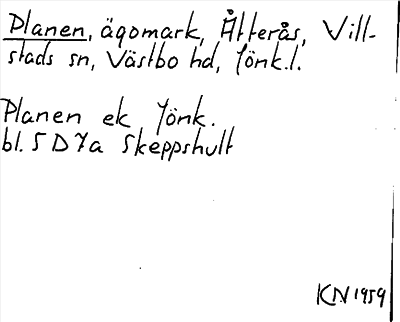 Planen, ägomark, Åtterås, Vill-
stads sn, Västbo hd, Jönk.l.
Planen ek Jönk.
bl. 5 D 7a Skeppshult
KN 1959